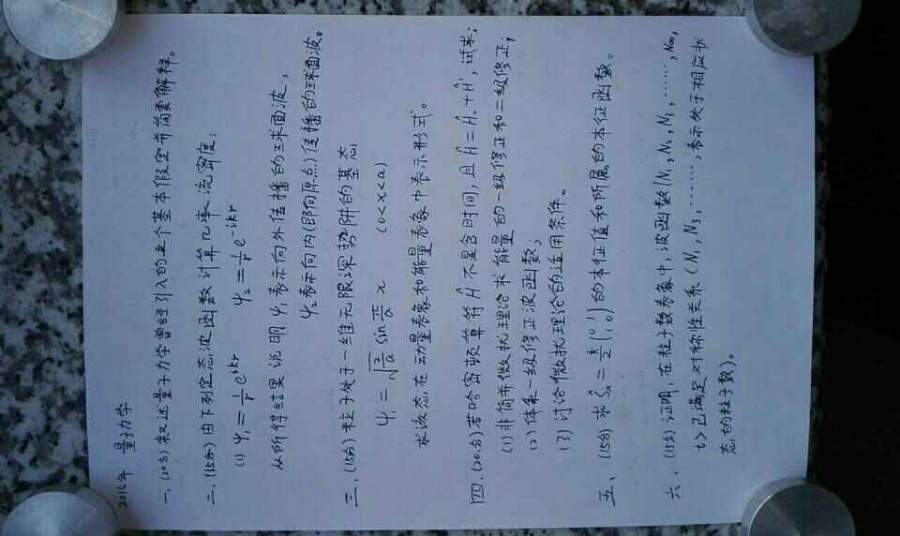 2016年 量子力学
一、(20分) 叙述量子力学曾经引入的五个基本假定并简要解释。
二、(15分) 由下列定态波函数计算几率流密度:
(1) ψ₁ = 1/r e^{ikr}  ψ₂ = 1/r e^{-ikr}
从所得结果说明 ψ₁表示向外传播的球面波,
ψ₂表示向内(即向原点)传播的球面波。
三、(15分) 粒子处于一维无限深势阱的基态
ψ₁ = √(2/a) sin π/a x  (0<x<a)
求该态在动量表象和能量表象中表示形式。
四、(20分) 若哈密顿算符Ĥ不显含时间,且Ĥ=Ĥ₀+Ĥ′,试求:
(1) 非简并微扰理论求能量的一级修正和二级修正;
(2) 体系一级修正波函数;
(3) 讨论微扰理论的适用条件。
五、(15分) 求 Ŝₓ = ħ/2 (0 1; 1 0) 的本征值和所属的本征函数。
六、(15分) 证明,在粒子数表象中,波函数|N₁,N₂,N₃,……,N∞,
t>已满足对称性关系(N₁,N₂,N₃,……,表示处于相应状
态的粒子数)。